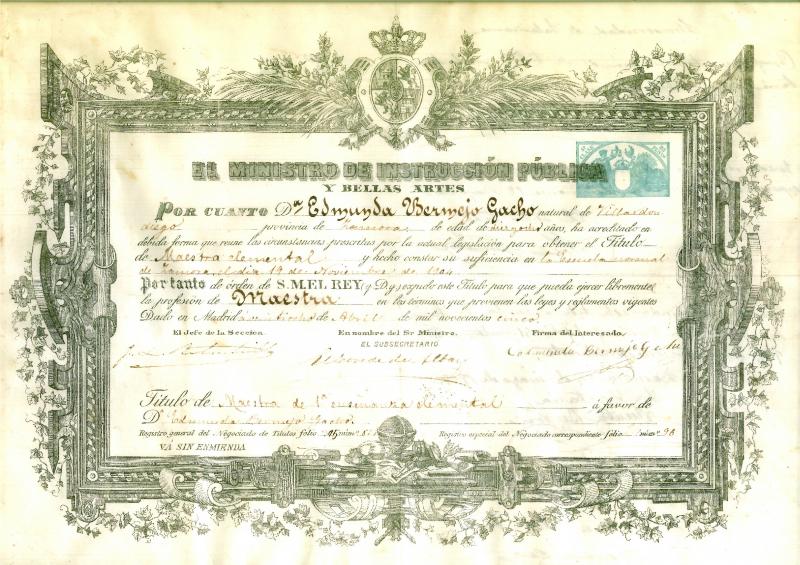 EL MINISTRO DE INSTRUCCIÓN PÚBLICA
Y BELLAS ARTES
POR CUANTO Dª Edmunda Bermejo Gacho natural de Villardon-
diego provincia de Zamora de edad de años, ha acreditado en
debida forma que reune las circunstancias prescritas por la actual legislación para obtener el Título
de Maestra elemental y hecho constar su suficiencia en la Escuela normal
de Zamora el dia 19 de Noviembre de 1904
Por tanto de órden de S. M. EL REY q. D. g. expido este Título para que pueda ejercer libremente
la profesión de Maestra en los términos que previenen las leyes y reglamentos vigentes
Dado en Madrid á veintiocho de Abril de mil novecientos cinco
El Jefe de la Sección. En nombre del Sr Ministro. Firma del Interesado.
EL SUBSECRETARIO
El Conde de Albay Edmunda Bermejo Gacho
Título de Maestra de 1ª enseñanza elemental á favor de
Dª Edmunda Bermejo Gacho
Registro general del Negociado de Títulos fólio núm Registro especial del Negociado correspondiente fólio núm
VA SIN ENMIENDA